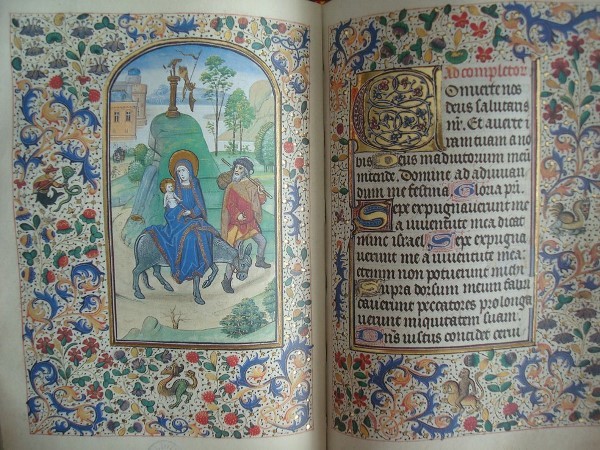 Ad completor
Conuerte nos
deus salutaris
nr. Et auerte i
ram tuam a no
bis Deus in adiutorium meū
intende. Domine ad adiuuan
dum me festina Gloria pri
Sepe expugnauerunt me
a iuuentute mea dicat
nunc israel Sepe expugna
uerunt me a iuuentute me a
etenim non potuerunt michi
Supra dorsum meum fabri
cauerunt peccatores prolonga
uerunt iniquitatem suam
Dns iustus concidet cerui